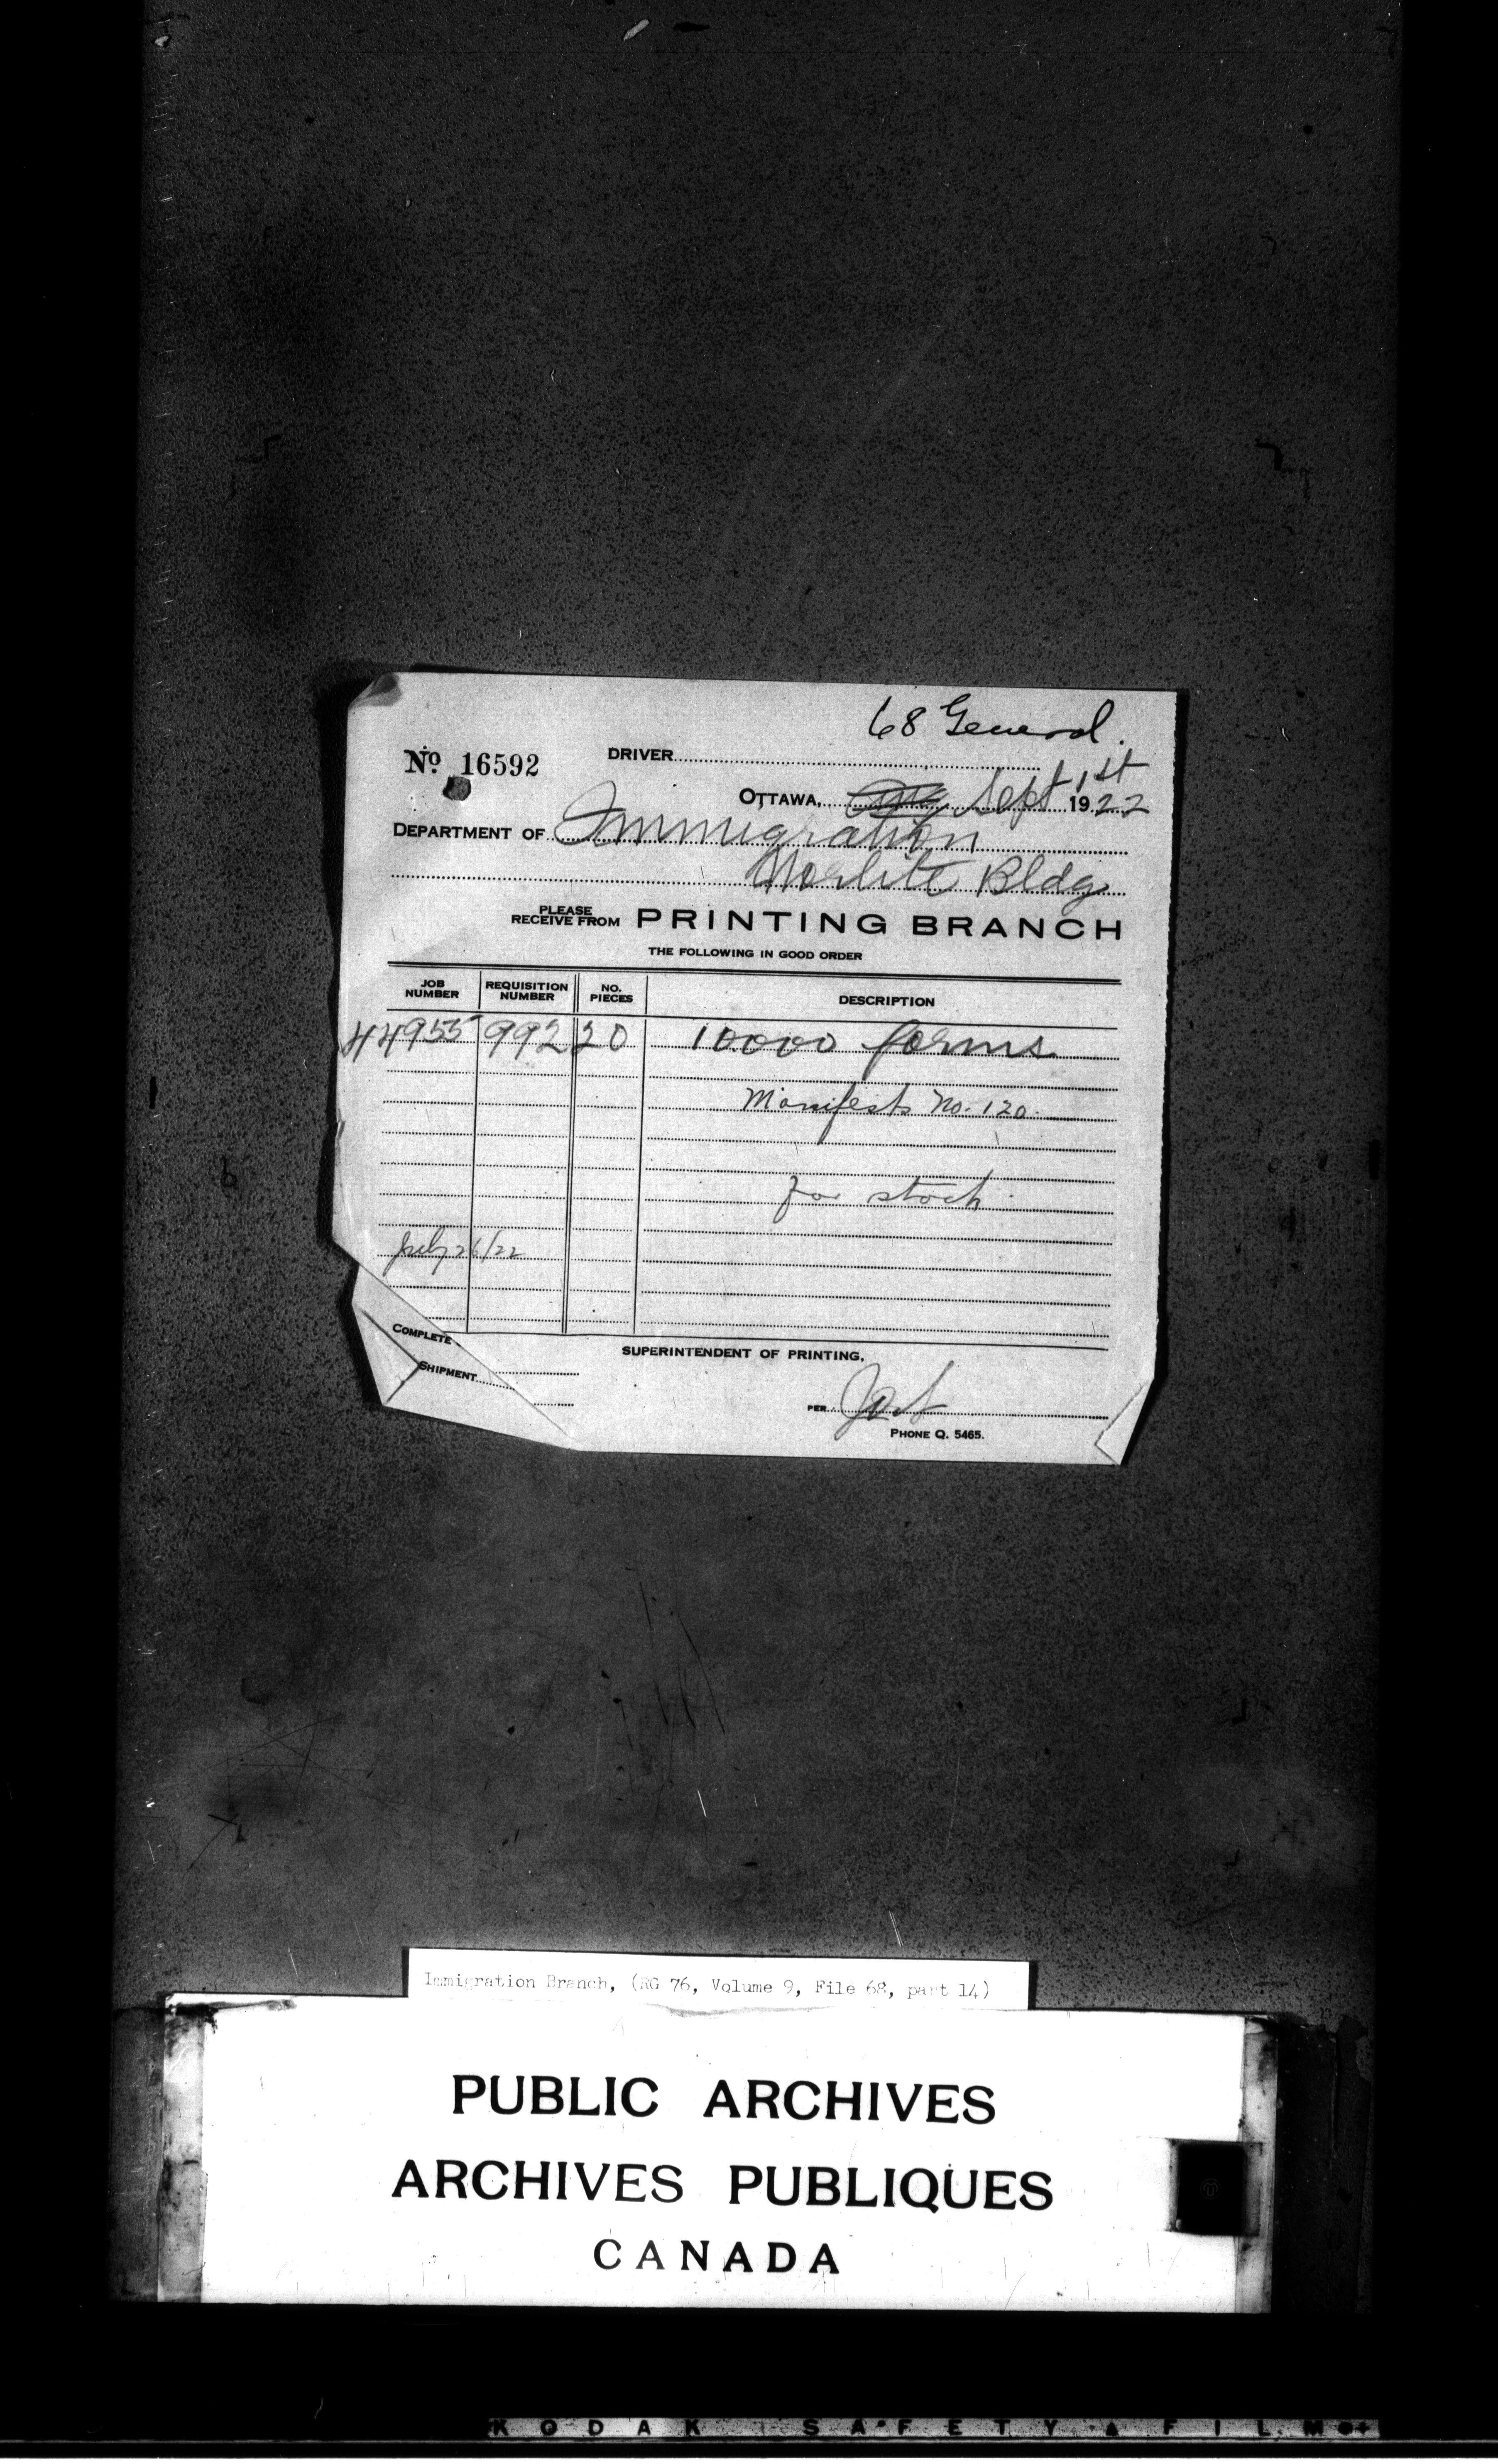 68 General.
No. 16592 DRIVER
OTTAWA, Sept 1st 1922
DEPARTMENT OF Immigration
Norlite Bldg
PLEASE RECEIVE FROM PRINTING BRANCH
THE FOLLOWING IN GOOD ORDER
JOB NUMBER REQUISITION NUMBER NO. PIECES DESCRIPTION
44955 992 20 10000 forms
Manifests No. 120.
for stock.
July 26/22
COMPLETE
SHIPMENT
SUPERINTENDENT OF PRINTING,
PER
PHONE Q. 5465.
Immigration Branch, (RG 76, Volume 9, File 68, part 14)
PUBLIC ARCHIVES
ARCHIVES PUBLIQUES
CANADA
KODAK SAFETY FILM